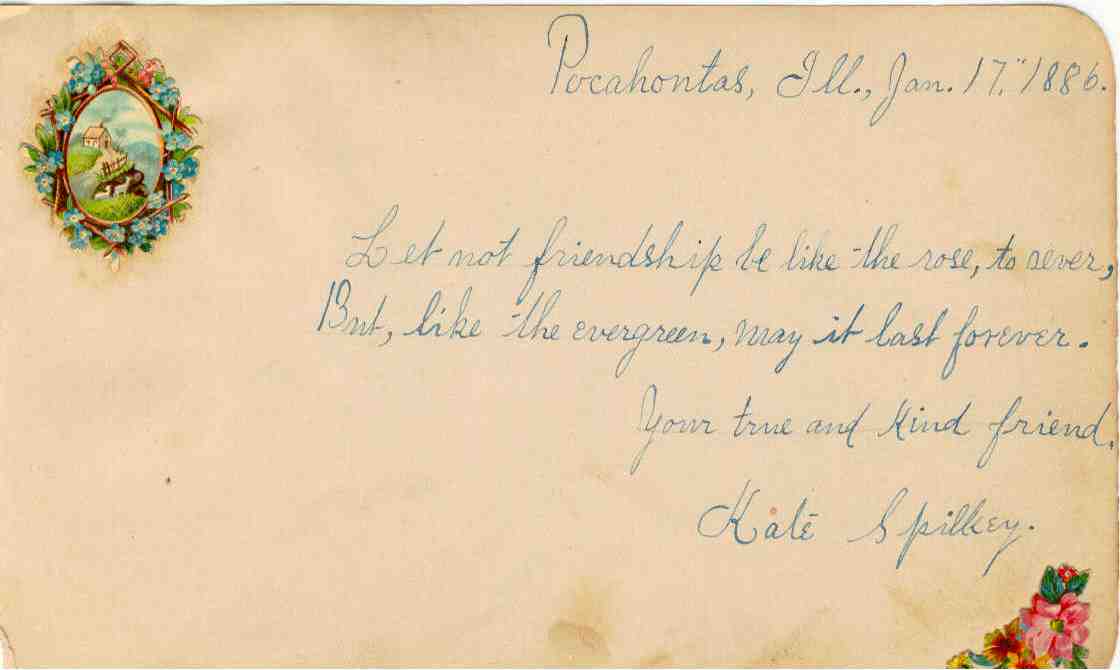 Pocahontas, Ill., Jan. 17," 1886.
Let not friendship be like the rose, to sever,
But, like the evergreen, may it last forever.
Your true and kind friend.
Kate Spilkey.